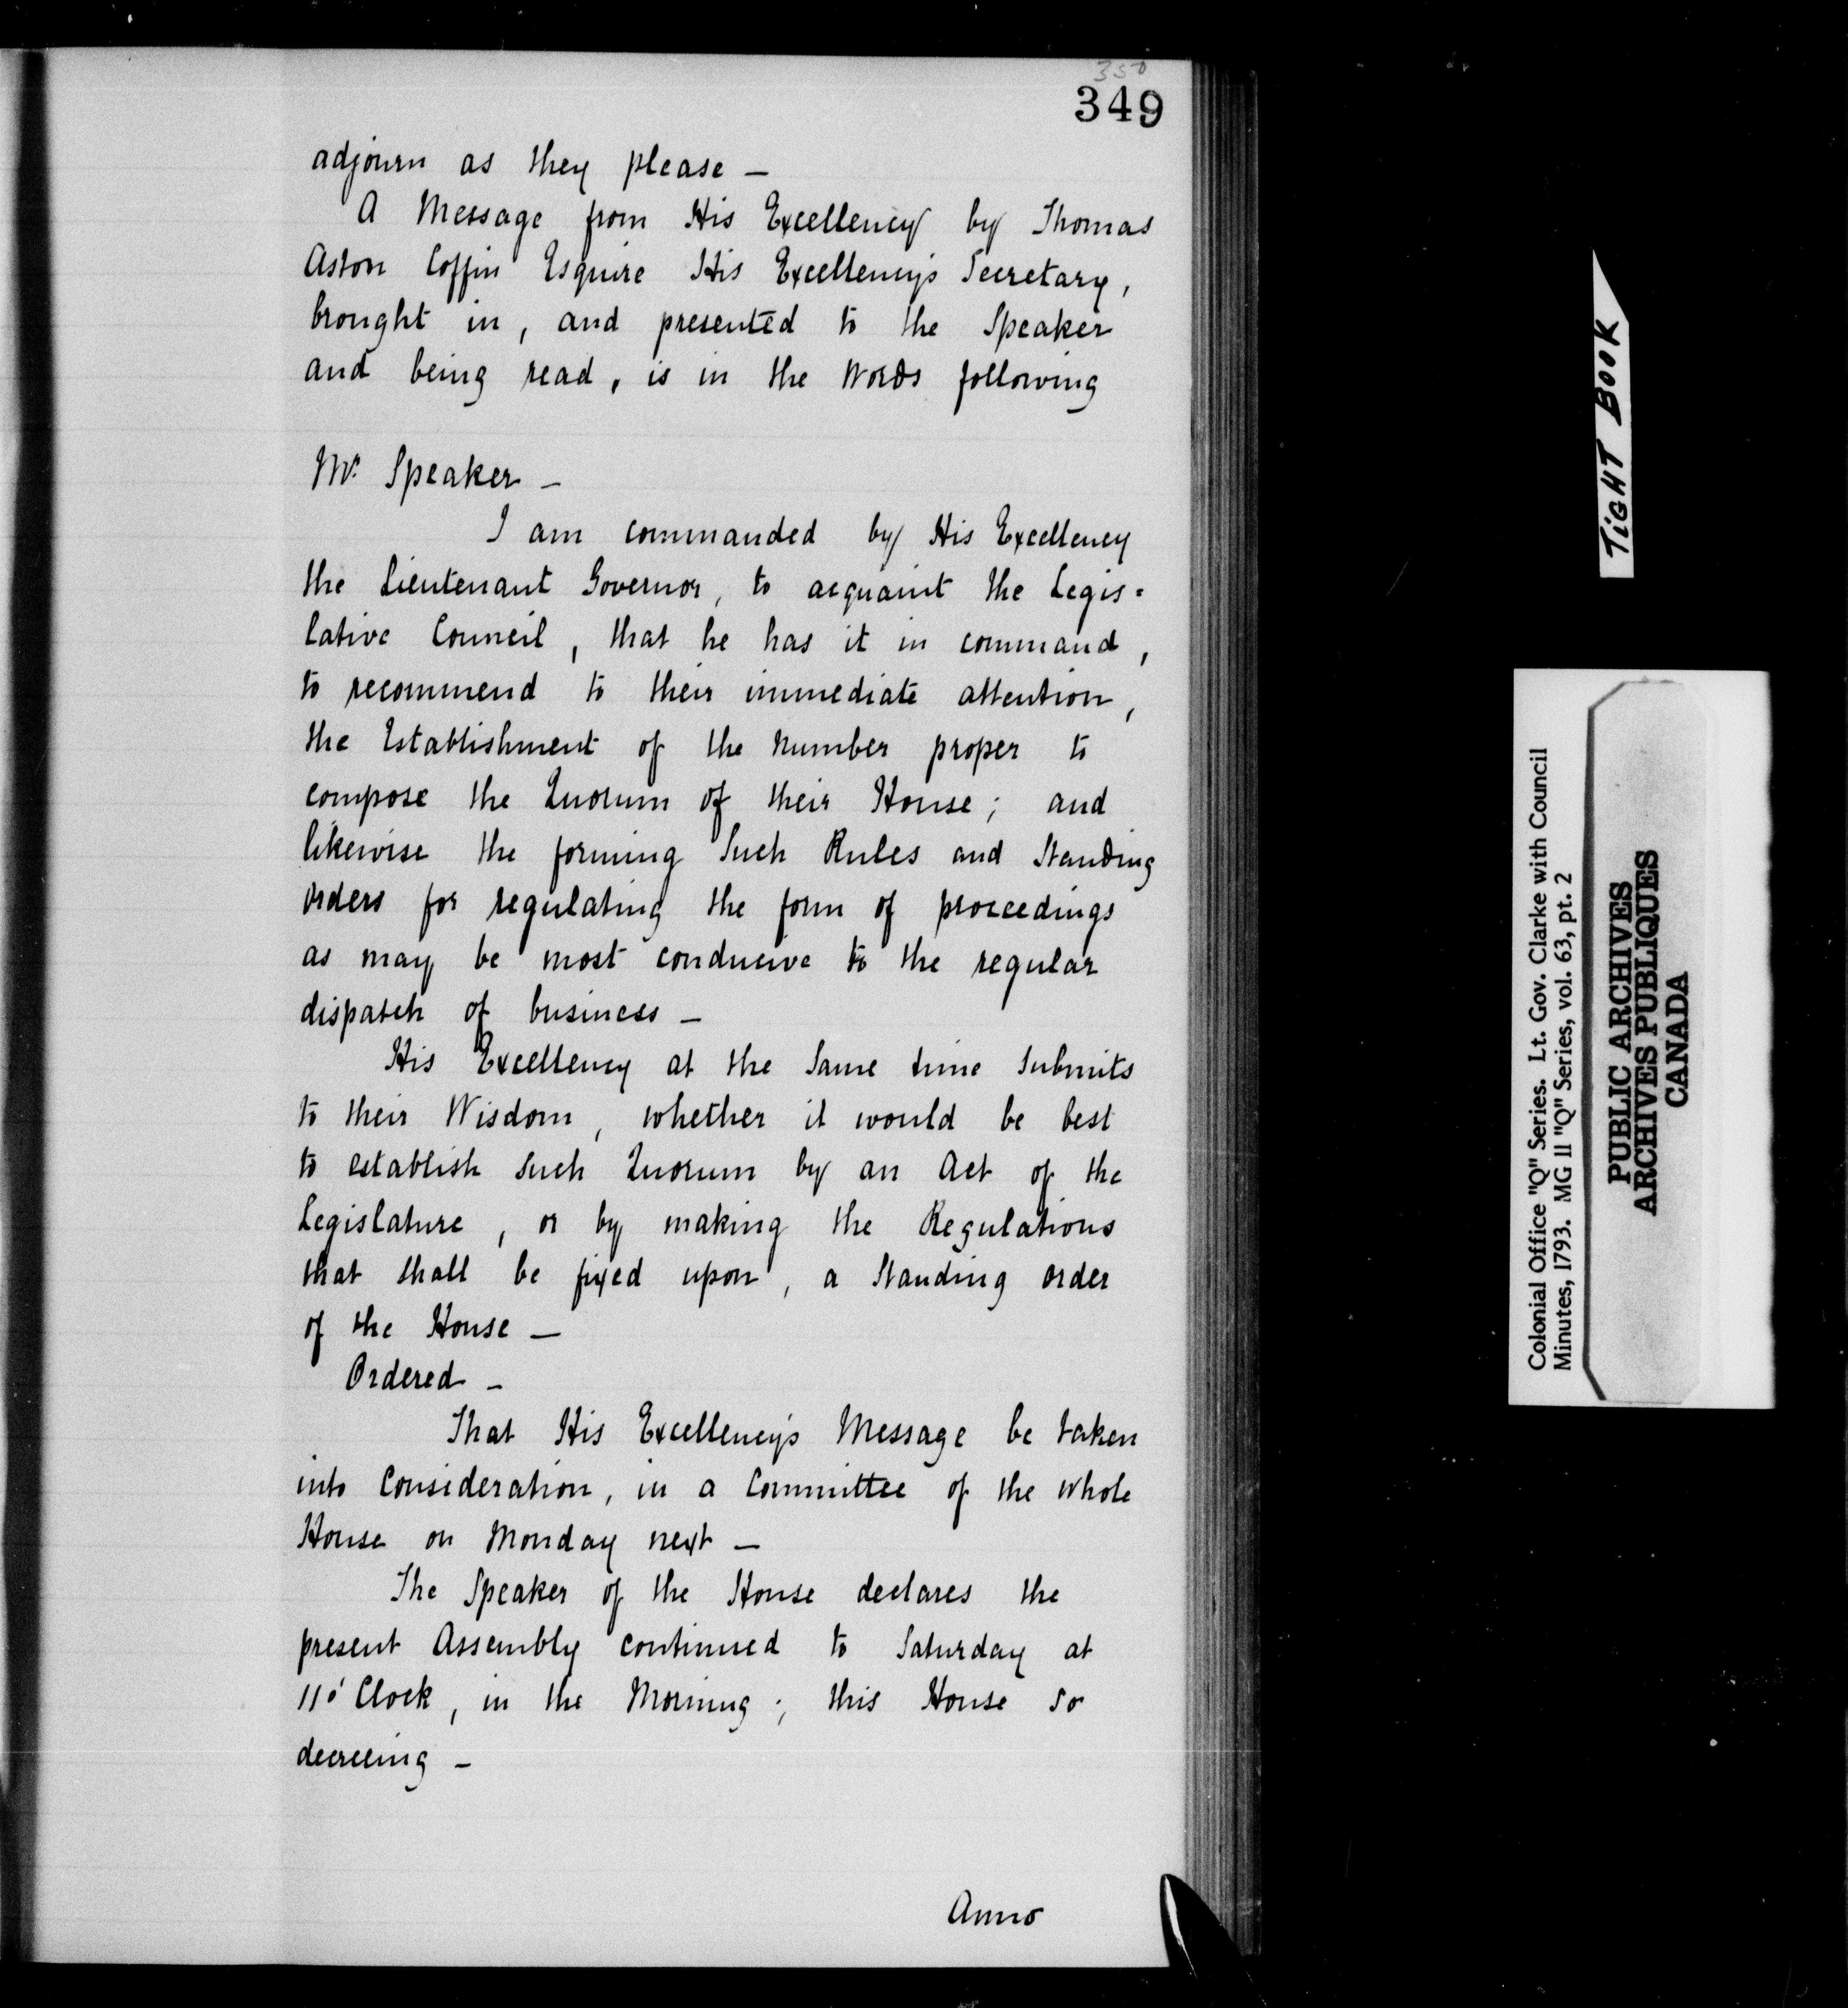 350
349
adjourn as they please —
A Message from His Excellency by Thomas
Aston Coffin Esquire His Excellency's Secretary,
brought in, and presented to the Speaker
and being read, is in the Words following
Mr. Speaker —
I am commanded by His Excellency
the Lieutenant Governor, to acquaint the Legis=
lative Council, that he has it in command,
to recommend to their immediate attention,
the Establishment of the number proper to
compose the Quorum of their House; and
likewise the forming Such Rules and Standing
orders for regulating the form of proceedings
as may be most conducive to the regular
dispatch of business —
His Excellency at the Same time Submits
to their Wisdom, whether it would be best
to establish Such Quorum by an Act of the
Legislature, or by making the Regulations
that shall be fixed upon, a Standing order
of the House —
Ordered —
That His Excellency's Message be taken
into Consideration, in a Committee of the whole
House on Monday next —
The Speaker of the House declares the
present Assembly continued to Saturday at
11 o'Clock, in the Morning; this House so
decreeing —
Anno
TIGHT BOOK
Colonial Office "Q" Series. Lt. Gov. Clarke with Council
Minutes, 1793. MG 11 "Q" Series, vol. 63, pt. 2
PUBLIC ARCHIVES
ARCHIVES PUBLIQUES
CANADA